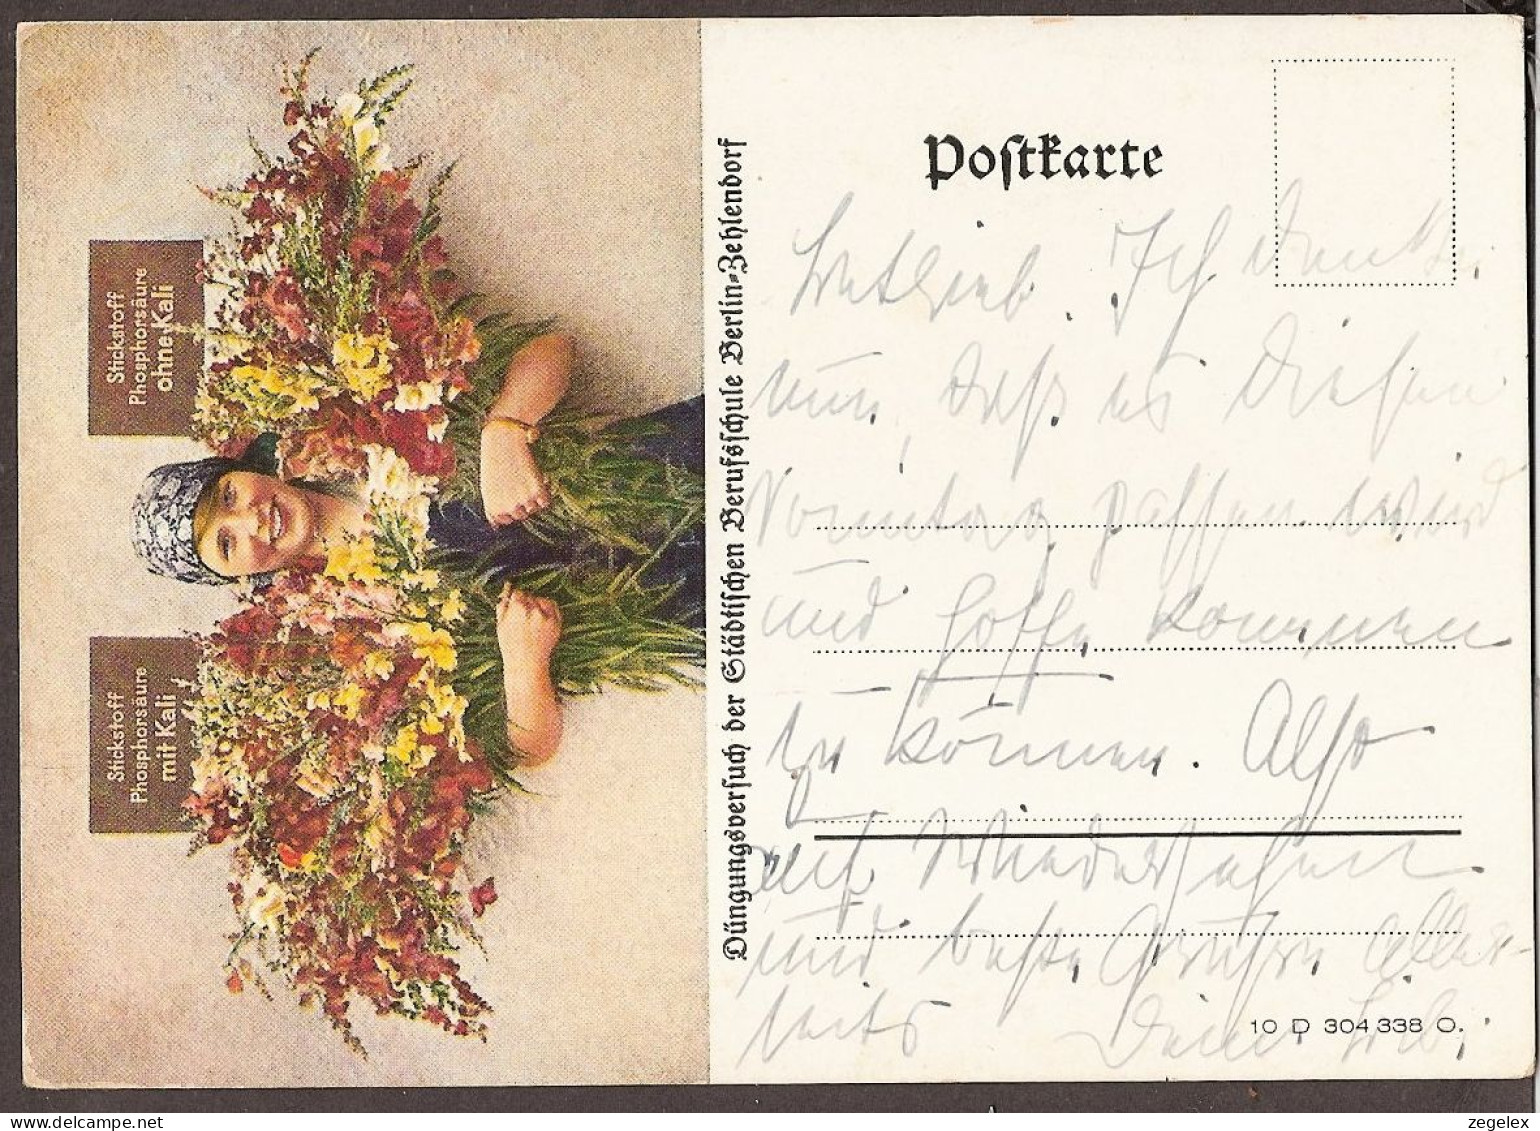 Stickstoff
Phosphorsäure
ohne Kali
Stickstoff
Phosphorsäure
mit Kali
Düngungsversuch der Städtischen Berufsschule Berlin-Zehlendorf
Postkarte
Ich denke
nun, daß es diesen
Sonntag passen wird
und hoffe kommen
zu können. Also
auf Wiedersehen
und beste Grüße aller-
seits Deine
10 D 304 338 O.
zegelex